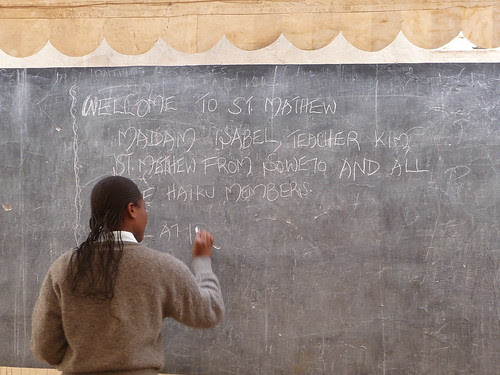 WELLCOME TO ST. MATHEW
MADAM ISABEL, TEACHER KIM,
ST. MATHEW FROM SOWETO AND ALL
HAIKU MEMBERS.